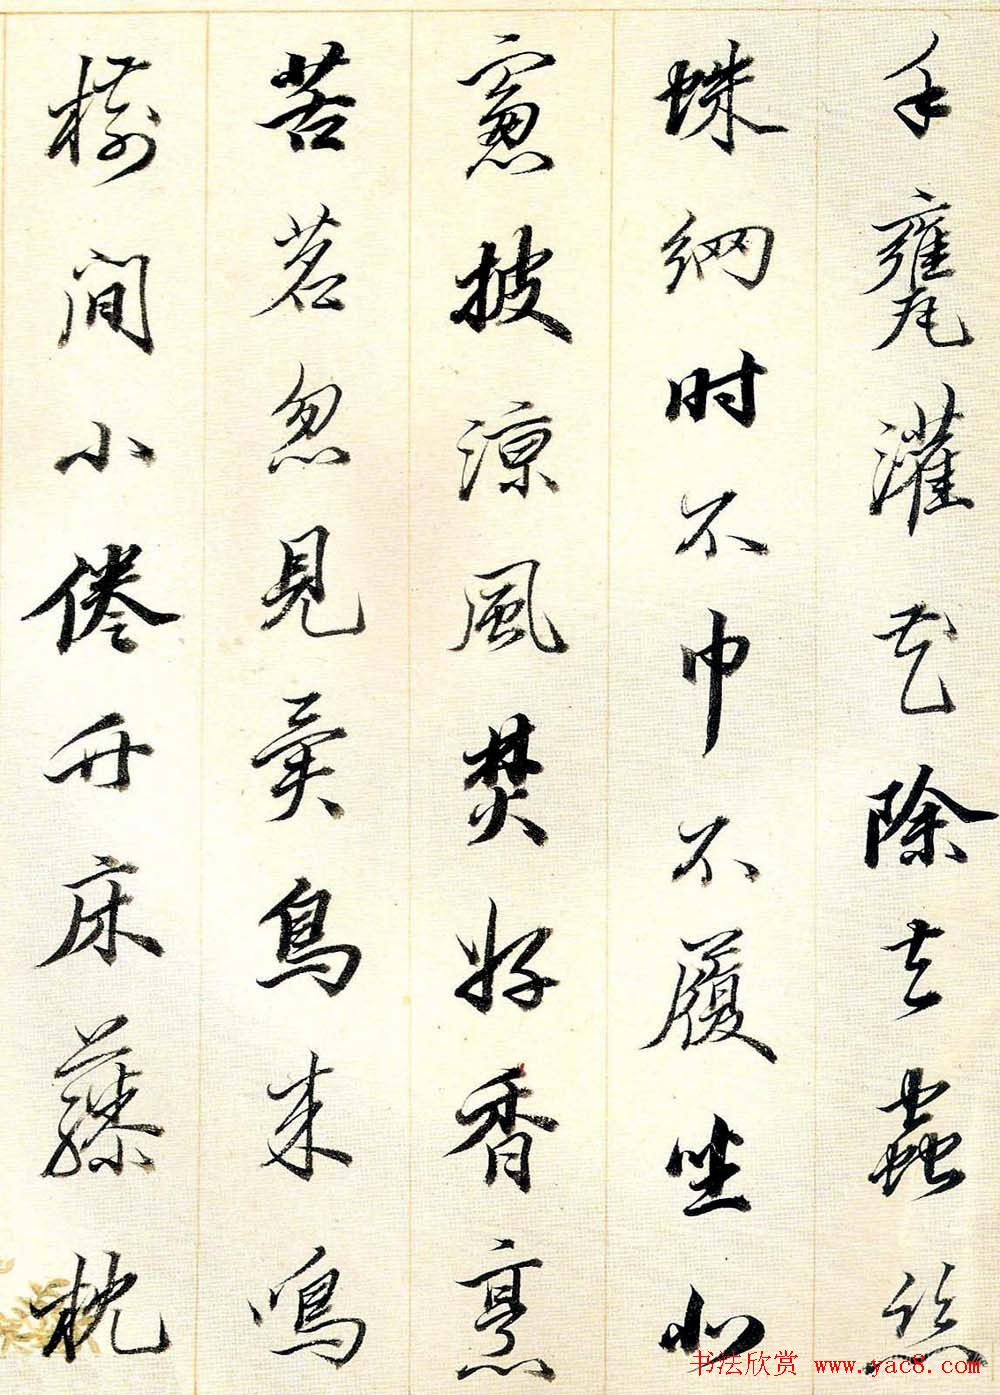 手甕灌花除去蟲絲
蛛網时不巾不履坐北
窻披涼風焚好香烹
苦茗忽見異鳥来鳴
樹間小倦竹床藤枕
书法欣赏 www.yac8.com